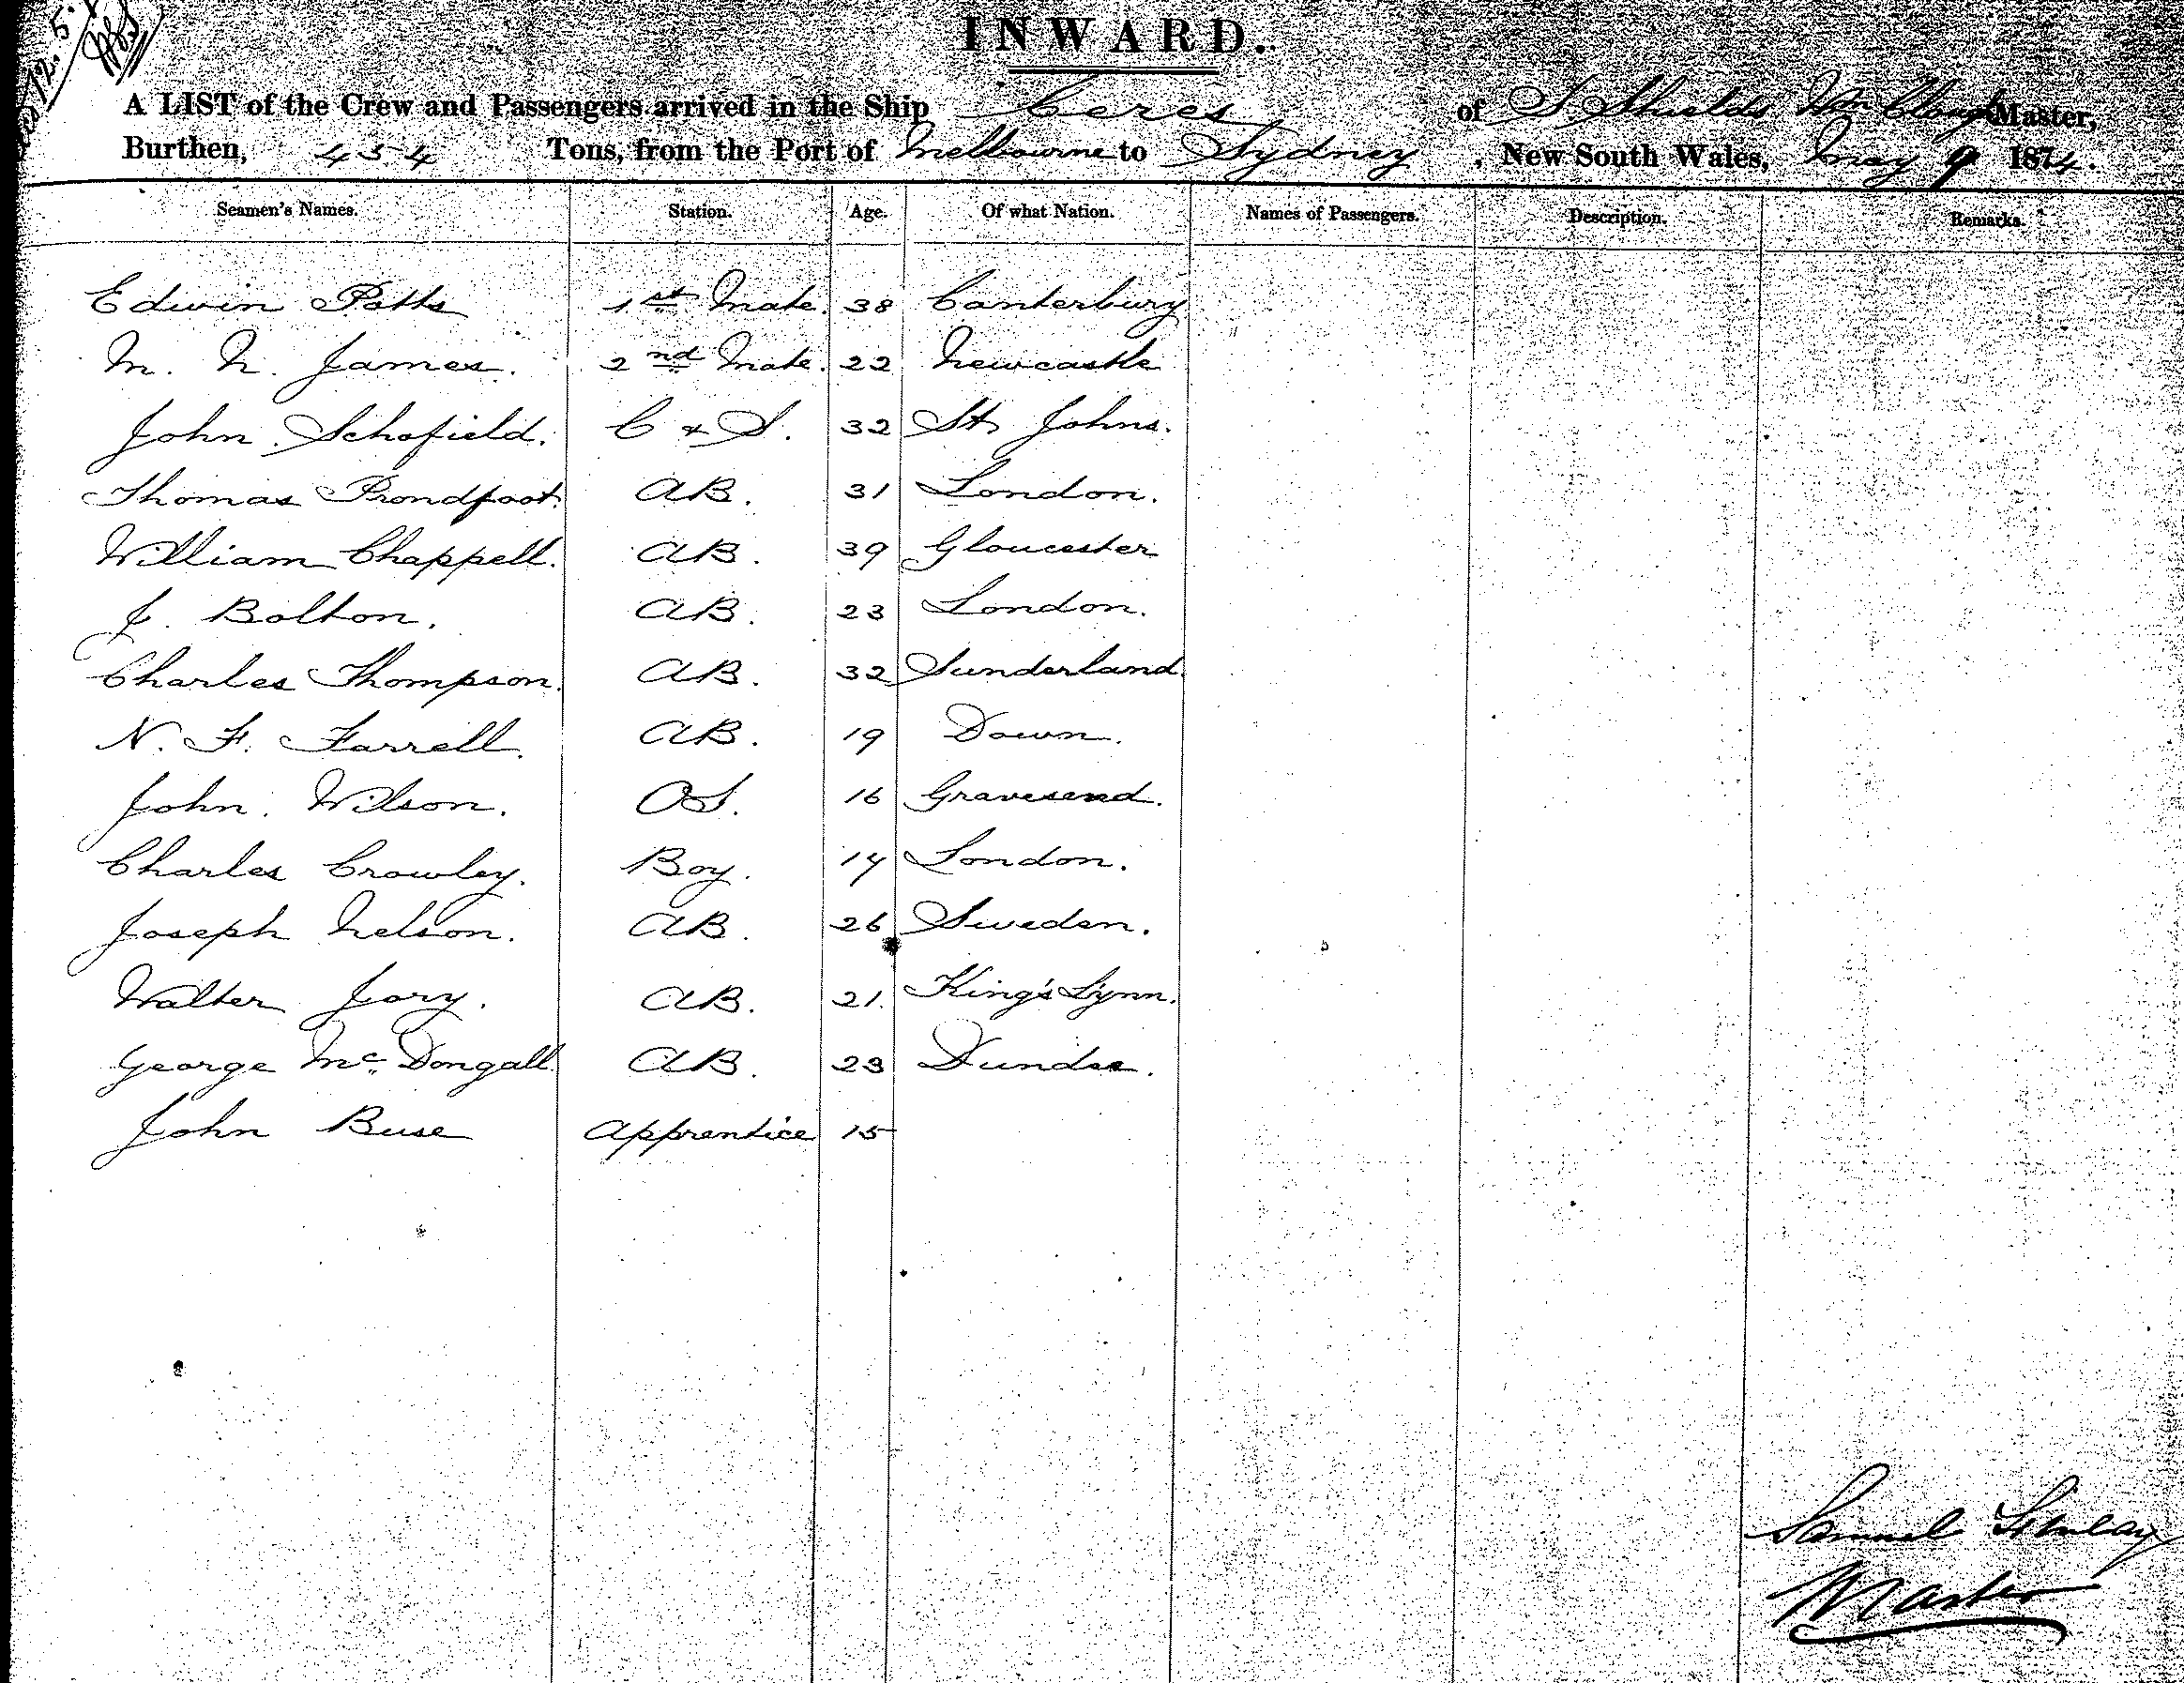 12. 5.
INWARD.
A LIST of the Crew and Passengers arrived in the Ship Ceres of S Shields, Wm Master,
Burthen, 454 Tons, from the Port of Melbourne to Sydney, New South Wales, May 9 1874.
Seamen's Names. Station. Age. Of what Nation. Names of Passengers. Description. Remarks.
Edwin Potts 1st Mate. 38 Canterbury
M. N. James. 2nd Mate. 22 Newcastle
John Schofield. C & S. 32 St Johns.
Thomas Proudfoot. AB. 31 London.
William Chappell. AB. 39 Gloucester
J. Bolton. AB. 23 London.
Charles Thompson. AB. 32 Sunderland.
N. F. Farrell. AB. 19 Down.
John Wilson. OS. 16 Gravesend.
Charles Crowley. Boy. 14 London.
Joseph Nelson. AB. 26 Sweden.
Walter Jory. AB. 21. King's Lynn.
George McDougall. AB. 23 Dundee.
John Buse Apprentice 15
Samuel
Master